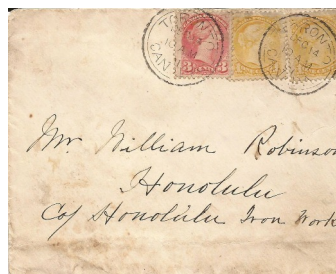 TORONTO
CAN
3 3
Mr. William Robinson
Honolulu
C/o Honolulu Iron Work